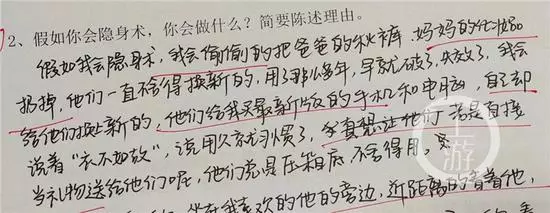 2、假如你会隐身术，你会做什么？简要陈述理由。
假如我会隐身术，我会偷偷的把爸爸的秋裤、妈妈的化妆品
扔掉，他们一直不舍得换新的，用了那么多年，早就破了、失效了，我会
给他们换上新的，他们给我买最新版的手机和电脑，自己却
说着“衣不如故”，说用久了就习惯了，
当礼物送给他们呢，他们总是压箱底，不舍得用，更
坐在我喜欢的他的旁边，近距离的看着他，
上游